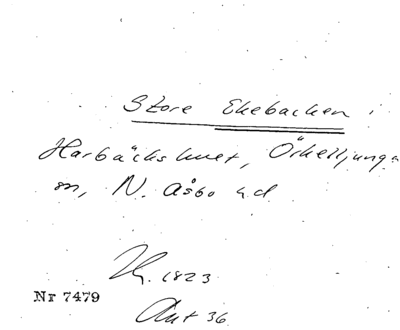 Store Ekebacken i
Harbäckshult, Örkelljunga
sn, N. Åsbo hd
1823
Nr 7479
Akt 36